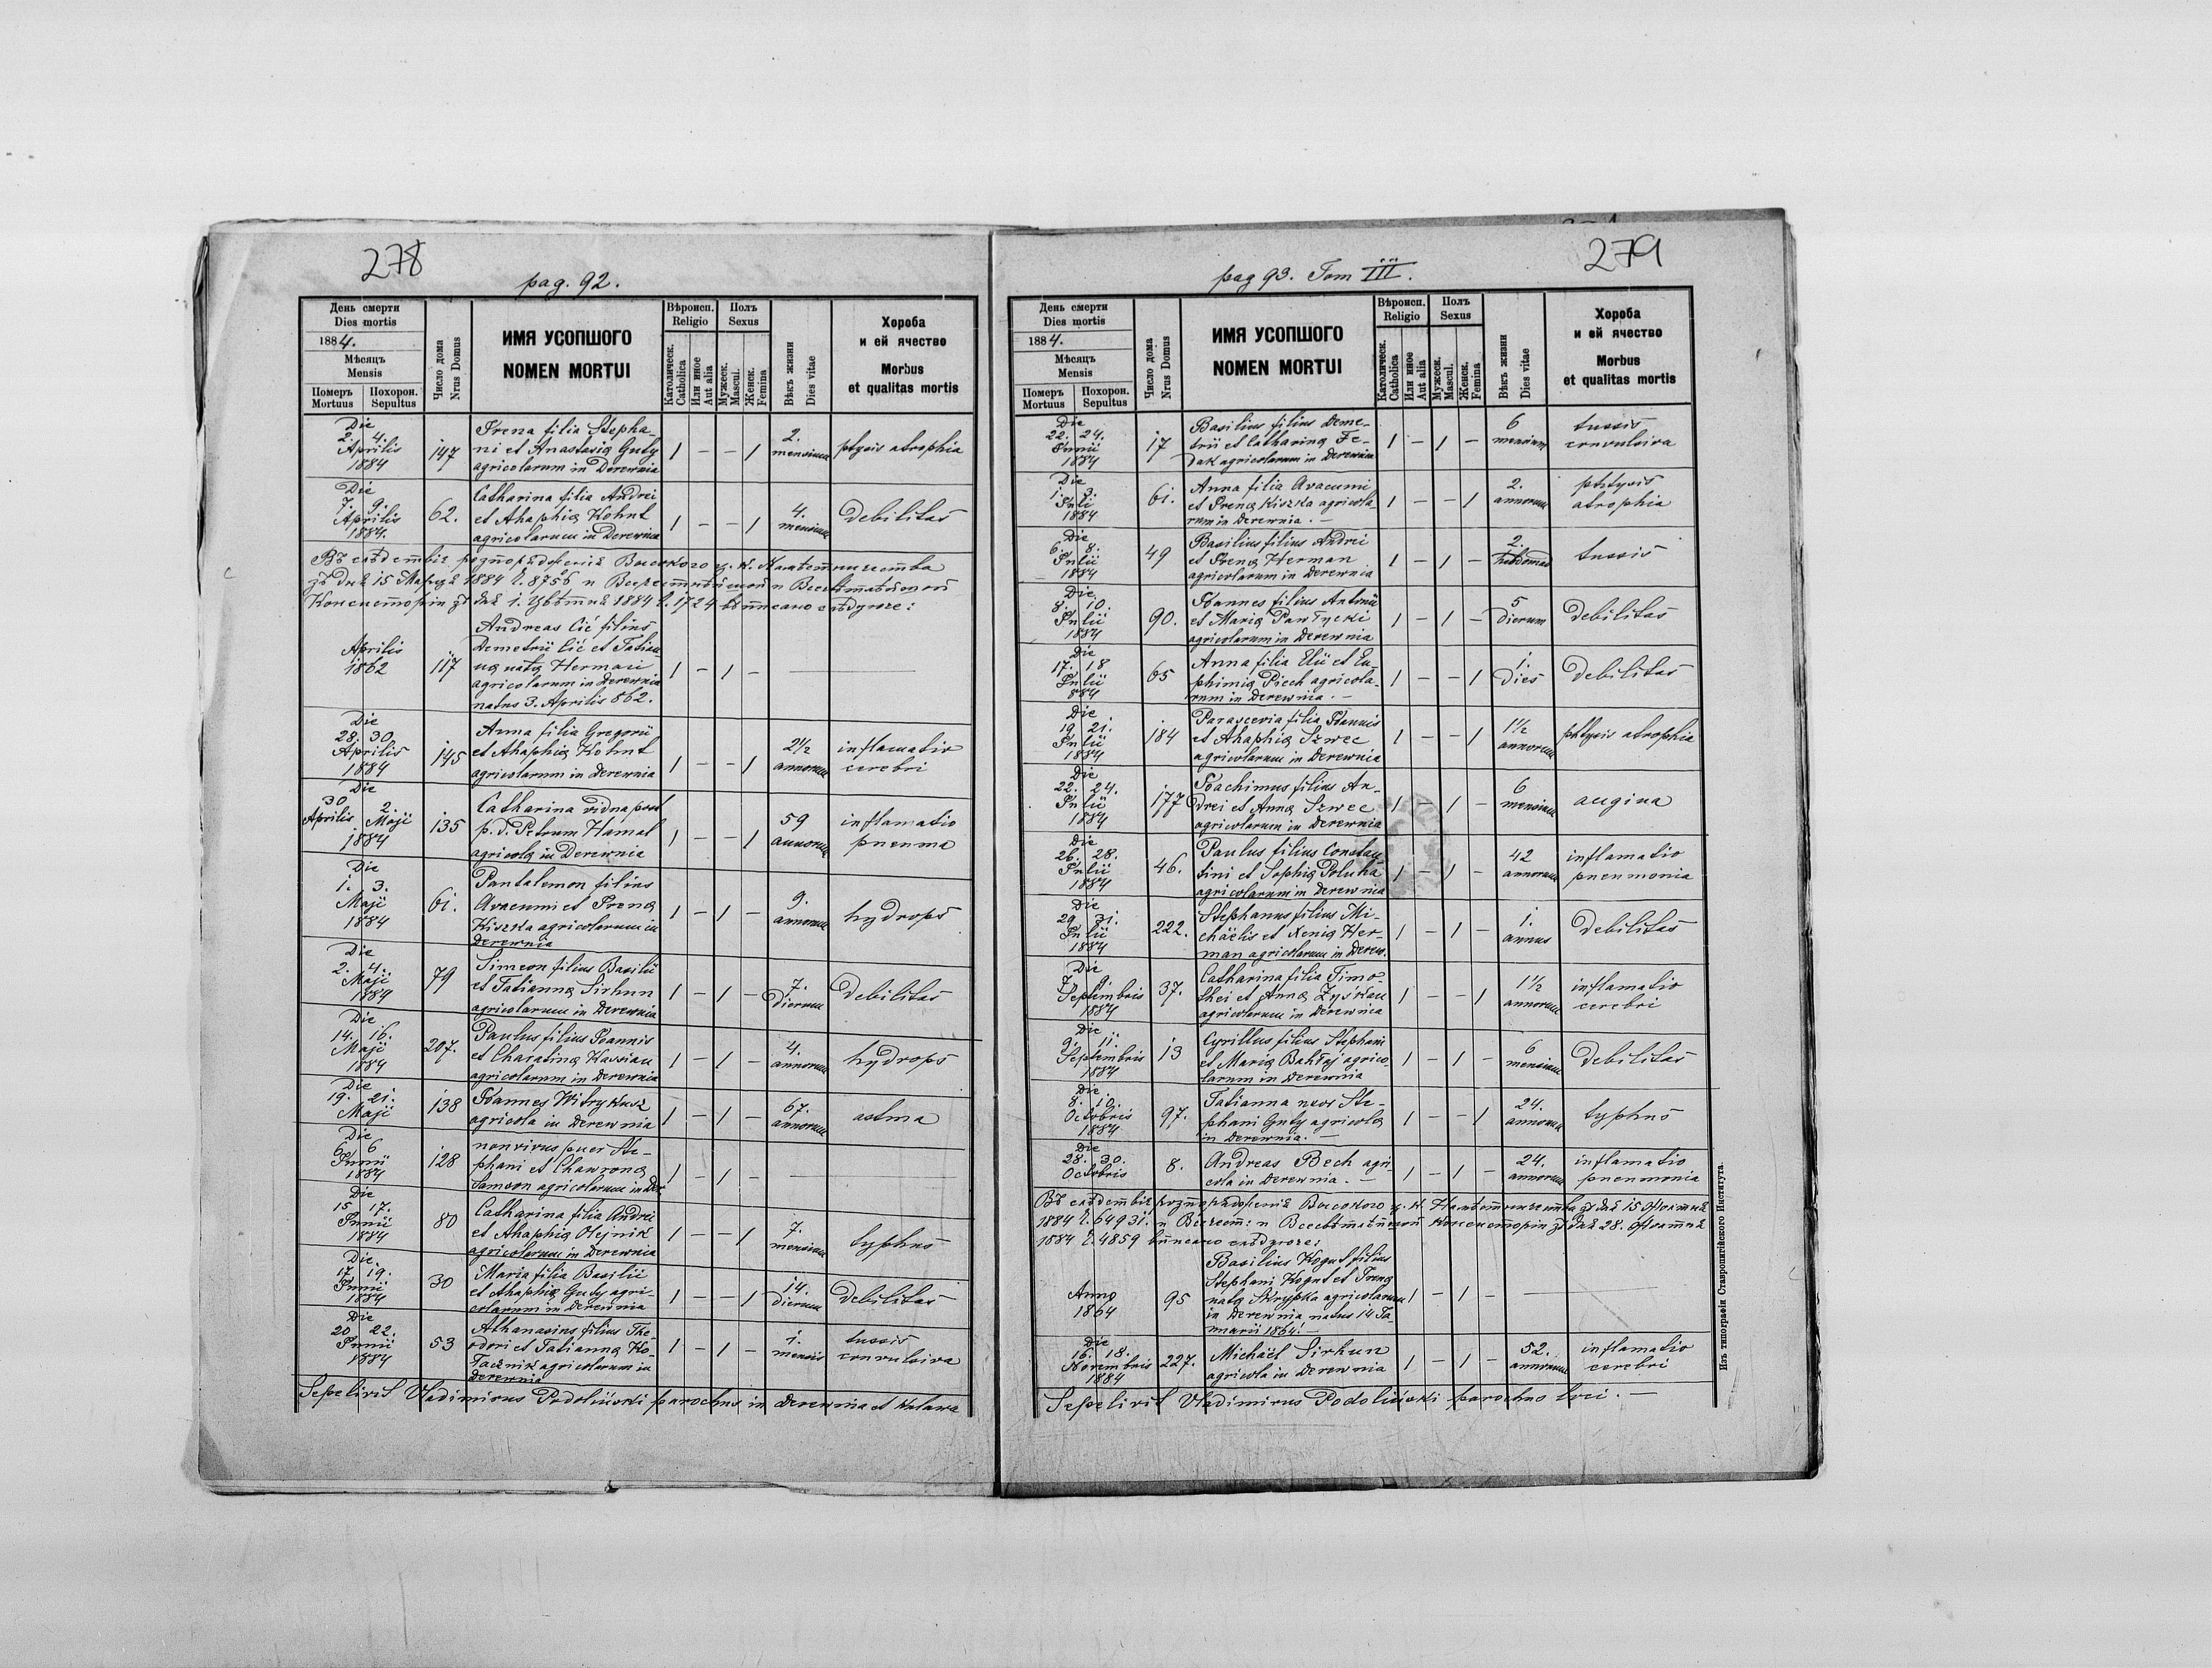 278
pag. 92.
День смерти
Dies mortis
1884.
Мѣсяцъ
Mensis
Померъ
Mortuus
Похорон.
Sepultus
Число дома
Nrus Domus
ИМЯ УСОПШОГО
NOMEN MORTUI
Вѣроисп.
Religio
Католическ.
Catholica
Или иное
Aut alia
Полъ
Sexus
Мужеск.
Mascul.
Женск.
Femina
Вѣкъ жизни
Dies vitae
Хороба
и ей ячество
Morbus
et qualitas mortis
Die
2. 4.
Aprilis
1884
147
Irena filia Stepha-
ni et Anastasia Guty
agricolarum in Derewnia
1 - - 1
2.
mensium
ptysis atrophia
Die
7. 9.
Aprilis
1884.
62.
Catharina filia Andrei
et Ahaphia Kohut
agricolarum in Derewnia
1 - - 1
4.
mensium
Debilitas
Высокого ц. к. Намѣстничества
зъ дня 15 Марця 1884 ч. 8756 и
Консисторіи зъ дня 1. Цвѣтня 1884 ч. 1724 вписано слѣдуюче:
Aprilis
1862
117
Andreas Cić filius
Demetrii Cić et Tatian
na nata Herman
agricolarum in Derewnia
natus 3. Aprilis 862.
1 - 1 -
Die
28. 30.
Aprilis
1884
145
Anna filia Gregorii
et Ahaphia Kohut
agricolarum in Derewnia
1 - - 1
2 1/2
annorum
inflamatio
cerebri
Die
30 2.
Aprilis Maji
1884
135
Catharina vidua post
p. d. Petrum Hamal
agricola in Derewnia
1 - - 1
59
annorum
inflamatio
pneuma
Die
1. 3.
Maji
1884
61.
Pantalemon filius
Avacumi et Irena
Kiszka agricolarum in
Derewnia
1 - 1 -
9.
annorum
hydrops
Die
2. 4.
Maji
1884
79
Simeon filius Basilii
et Tatianna Sirhun
agricolarum in Derewnia
1 - 1 -
7.
dierum
Debilitas
Die
14. 16.
Maji
1884
207.
Paulus filius Joannis
et Charatina Kassian
agricolarum in Derewnia
1 - 1 -
4.
annorum
hydrops
Die
19. 21.
Maji
138
Joannes Witrykusz
agricola in Derewnia
1 - 1 -
67.
annorum
astma
Die
6 6
Junii
1884
128
non vivus puer Ste-
phani et Chawrona
Samson agricolarum in Der
1 - 1 -
Die
15 17.
Junii
1884
80
Catharina filia Andrei
et Ahaphia Olejnik
agricolarum in Derewnia
1 - - 1
7.
mensium
typhus
Die
17 19.
Junii
1884
30
Maria filia Basilii
et Ahaphia Guty agri-
colarum in Derewnia
1 - - 1
14.
dierum
Debilitas
Die
20 22.
Junii
1884
53
Athanasius filius The-
odori et Tatianna Ko-
łacznik agricolarum in
Derewnia
1 - 1 -
1.
mensis
tussis
convulsiva
Sepelivit Vladimirus Podoliński parochus in Derewnia et Kulawa
279
pag 93. Tom III.
День смерти
Dies mortis
1884.
Мѣсяцъ
Mensis
Померъ
Mortuus
Похорон.
Sepultus
Число дома
Nrus Domus
ИМЯ УСОПШОГО
NOMEN MORTUI
Вѣроисп.
Religio
Католическ.
Catholica
Или иное
Aut alia
Полъ
Sexus
Мужеск.
Mascul.
Женск.
Femina
Вѣкъ жизни
Dies vitae
Хороба
и ей ячество
Morbus
et qualitas mortis
Die
22. 24.
Junii
1884
17
Basilius filius Deme-
trii et Catharina Fe-
dak agricolarum in Derewnia
1 - 1 -
6
mensium
tussis
convulsiva
Die
1. 3.
Juli
1884
61.
Anna filia Avacumi
et Irena Kiszka agricola-
rum in Derewnia. -
1 - - 1
2.
annorum
phtysis
atrophia
Die
6. 8.
Julii
1884
49
Basilius filius Andrei
et Irena Herman
agricolarum in Derewnia
1 - 1 -
2.
hebdomad
tussis
Die
8. 10.
Julii
1884
90.
Joannes filius Antonii
et Maria Pawłycki
agricolarum in Derewnia
1 - 1 -
5
dierum
Debilitas
Die
17. 18
Julii
884
65
Anna filia Elii et Eu-
phimia Piech agricola-
rum in Derewnia. -
1 - - 1
1.
dies
Debilitas
Die
19 21.
Julii
1884
184
Parascevia filia Joannis
et Ahaphia Szwec
agricolarum in Derewnia
1 - - 1
1 1/2
annorum
phtysis atrophia
Die
22. 24.
Julii
1884
177
Joachimus filius An-
drei et Anna Szwec
agricolarum in Derewnia
1 - 1 -
6
mensium
angina
Die
26. 28.
Julii
1884
46.
Paulus filius Constan-
tini et Sophia Poluha
agricolarum in Derewnia
1 - 1 -
42
annorum
inflamatio
pneumonia
Die
29 31.
Julii
1884
222.
Stephanus filius Mi-
chaëlis et Xenia Her-
man agricolarum in Derew.
1 - 1 -
1.
annus
Debilitas
Die
7. 9.
Septembris
1884
37.
Catharina filia Timo-
thei et Anna Zyskan
agricolarum in Derewnia
1 - - 1
1 1/2
annorum
inflamatio
cerebri
Die
9. 11.
Septembris
1884
13
Cyrillus filius Stephani
et Maria Bahłaj agrico
larum in Derewnia
1 - 1 -
6
mensium
Debilitas
Die
8. 10.
Octobris
1884
97.
Tatianna uxor Ste-
phani Guty agricola
in Derewnia. -
1 - - 1
24.
annorum
typhus
Die
28. 30.
Octobris
8.
Andreas Bech agri-
cola in Derewnia. -
1 - 1 -
24.
annorum
inflamatio
pneumonia
Высокого ц. к. Намѣстничества зъ дня 15
1884 ч. 64931. и Консисторіи зъ дня 28.
1884 ч. 4859 вписано слѣдуюче:
Anno
1864
95
Basilius Kogut filius
Stephani Kogut et Irena
nata Skrypka agricolarum
in Derewnia natus 14 Ja-
nuarii 1864. -
1 - 1 -
Die
16. 18.
Novembris
1884
227.
Michaël Sirhun
agricola in Derewnia
1 - 1 -
52.
annorum
inflamatio
cerebri
Sepelivit Vladimirus Podoliński parochus loci. -
Изъ типографіи Ставропигійского Института.